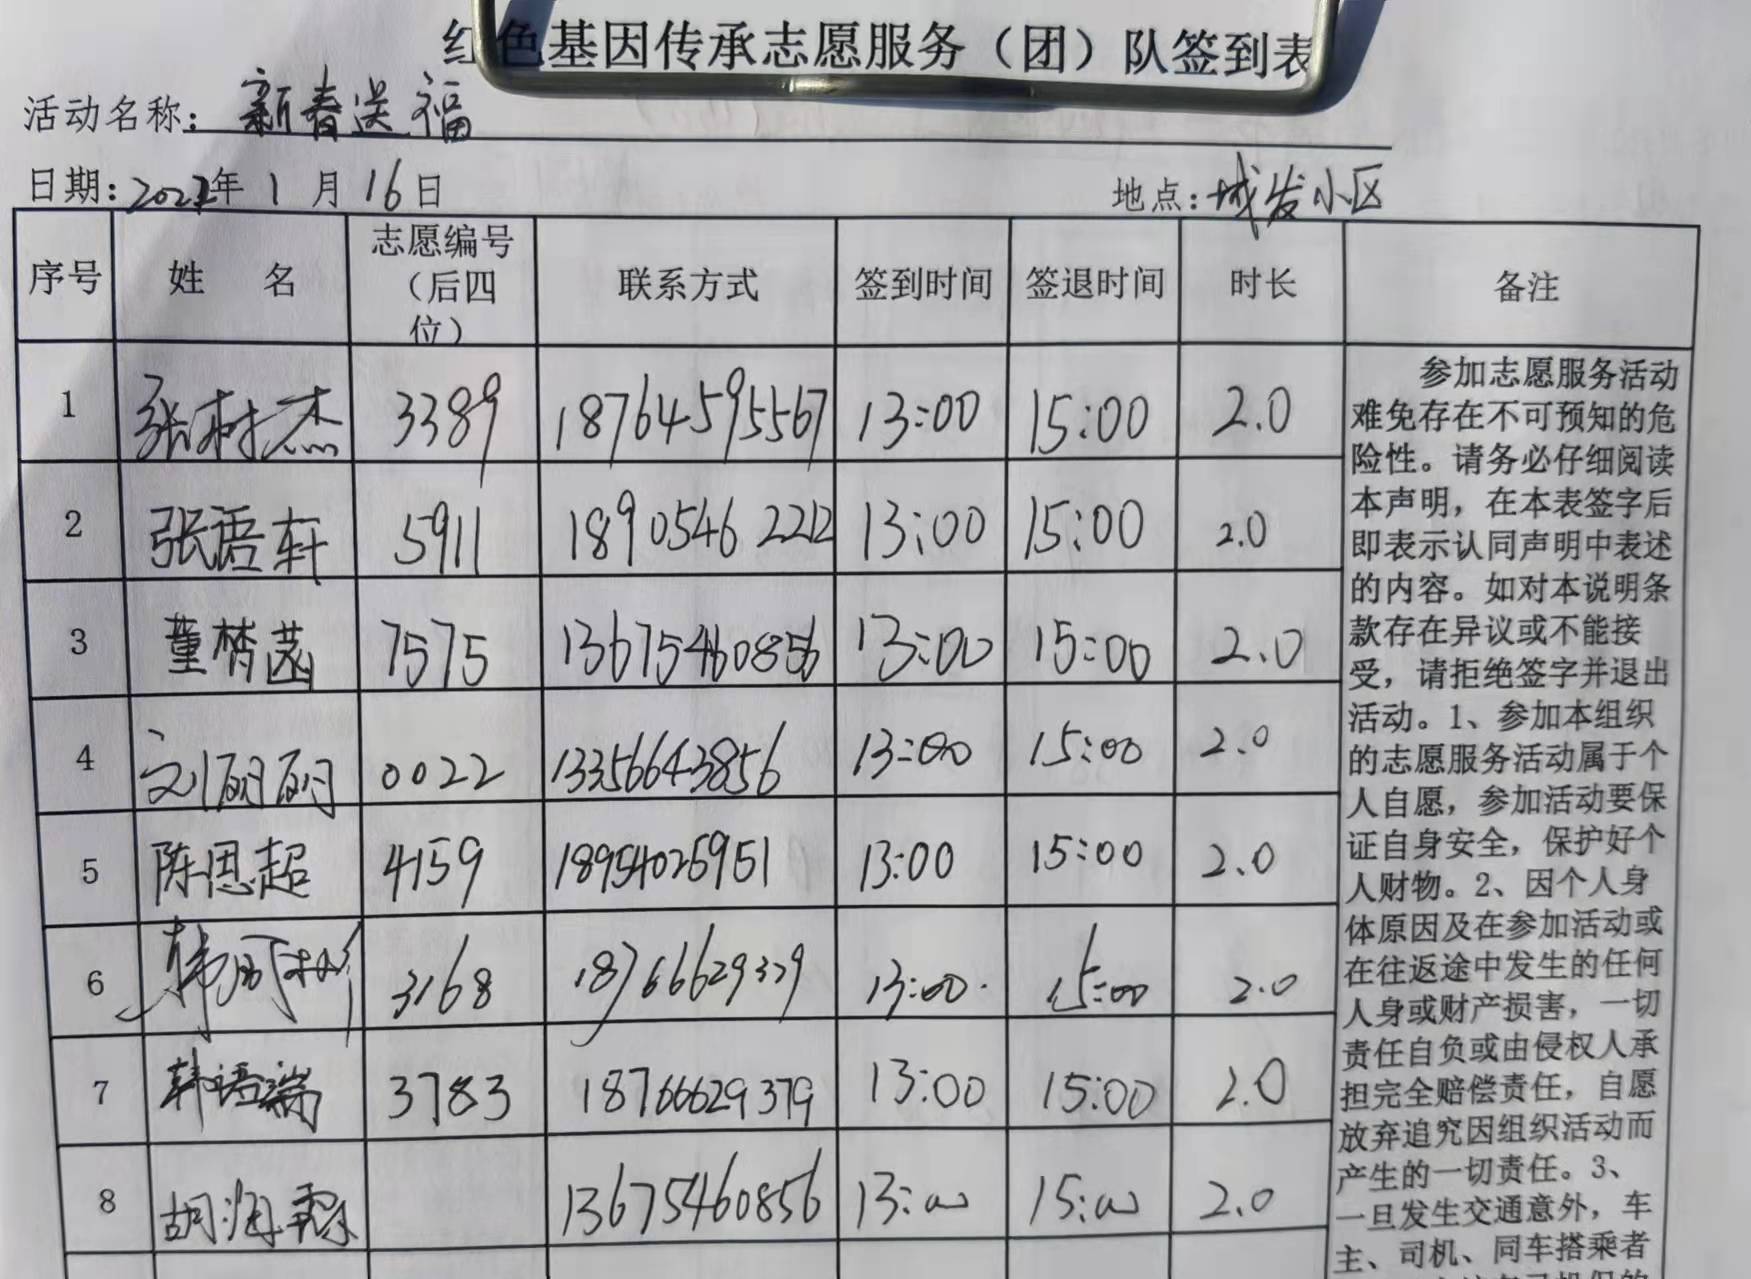 红色基因传承志愿服务（团）队签到表
活动名称：新春送福
日期：2022年1月16日 地点：城发小区
序号 姓 名 志愿编号（后四位） 联系方式 签到时间 签退时间 时长 备注
1 张树杰 3389 18764595567 13:00 15:00 2.0
2 张语轩 5911 18905462212 13:00 15:00 2.0
3 董梦菡 7575 13675460856 13:00 15:00 2.0
4 刘丽丽 0022 13356643856 13:00 15:00 2.0
5 陈恩超 4159 18954025951 13:00 15:00 2.0
6 韩 3168 18766629379 13:00 15:00 2.0
7 韩语端 3783 18766629379 13:00 15:00 2.0
8 胡海霖 13675460856 13:00 15:00 2.0
参加志愿服务活动
难免存在不可预知的危
险性。请务必仔细阅读
本声明，在本表签字后
即表示认同声明中表述
的内容。如对本说明条
款存在异议或不能接
受，请拒绝签字并退出
活动。1、参加本组织
的志愿服务活动属于个
人自愿，参加活动要保
证自身安全，保护好个
人财物。2、因个人身
体原因及在参加活动或
在往返途中发生的任何
人身或财产损害，一切
责任自负或由侵权人承
担完全赔偿责任，自愿
放弃追究因组织活动而
产生的一切责任。3、
一旦发生交通意外，车
主、司机、同车搭乘者